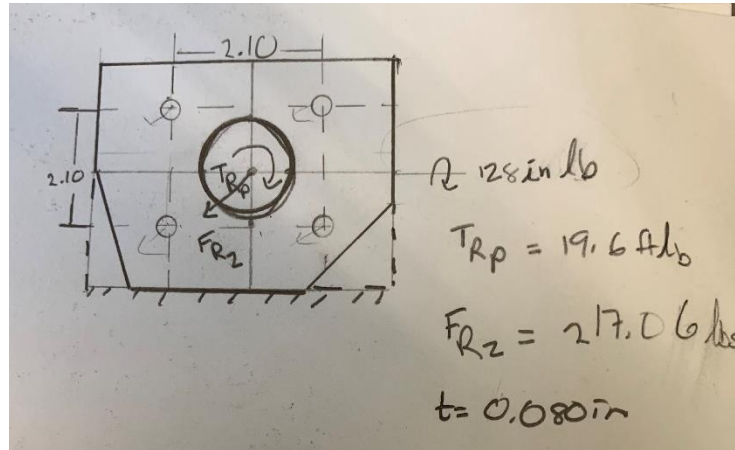 2.10
2.10
T_Rp
F_R2
↷ 128 in lb
T_Rp = 19.6 ft lb
F_R2 = 217.06 lbs
t= 0.080in